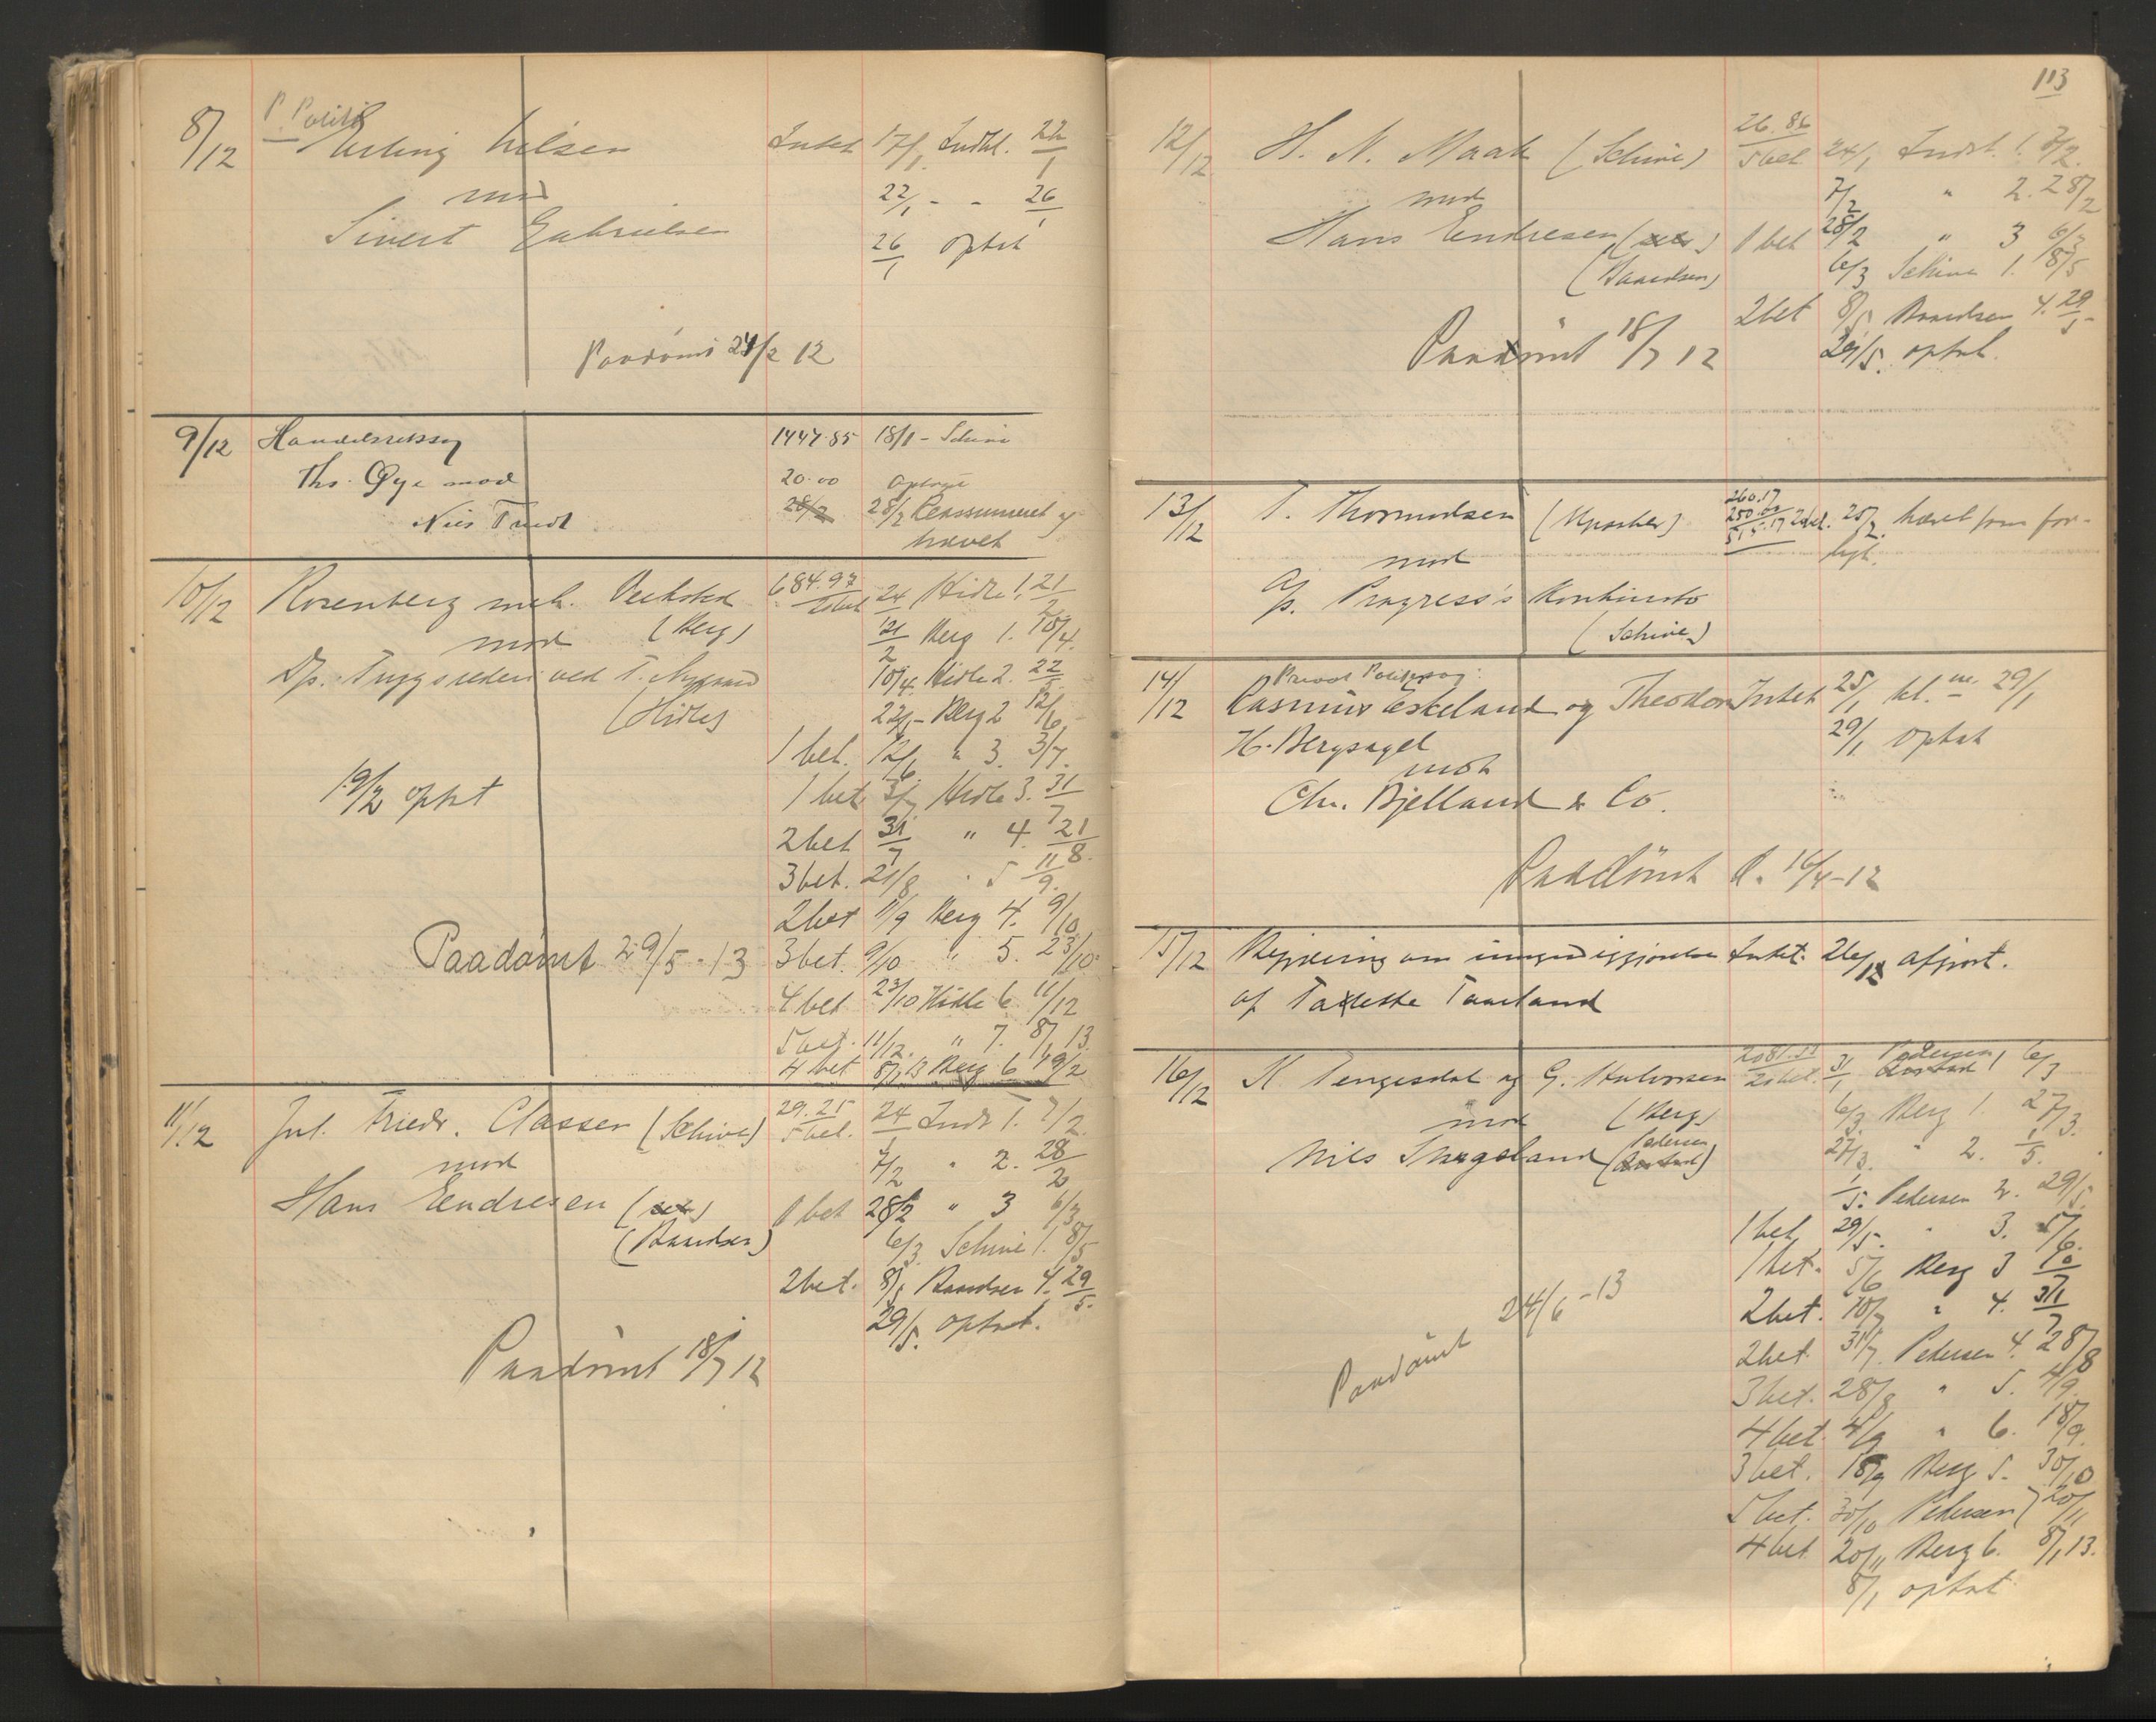 8/12 P. Politi
Erling Nilsen Intet 17/1 Indkl. 22/1
mod 22/1 - - 26/1
Sivert Gabrielsen
26/1 optat
Paadömt 24/2 12
9/12 Handelsretssag 1447.85 18/1 - Schive
Ths. Øye mod 20.00 optaget
28/2
Nils Tredt 28/2 Reassumeret og
hævet
10/12 Rosenberg mek. Værksted 684.97 24/1 Hidle 1. 21/2
mod (Berg) 21/2 Berg 1. 10/4.
D/s. Tryggs rederi ved T. 10/4. Hidle 2. 22/5
(Hidle) 22/5 - Berg 2 12/6
1 bet. 12/6 " 3. 3/7.
19/2 optat 1 bet 3/7 Hidle 3. 31/7
2 bet 31/7 " 4. 21/8.
3 bet. 21/8 " 5 11/9.
2 bet 11/9 Berg 4. 9/10
Paadömt 29/5 - 13 3 bet. 9/10 " 5. 23/10.
4 bet 23/10 Hidle 6 11/12
5 bet. 11/12. " 7. 8/1 13.
4 bet 8/1 13 Berg 6 19/2
11/12 Jul. Friedr. Classen (Schive) 29.25 5 bet. 24/1 Inds. 1. 7/2.
mod 7/2 " 2. 28/2
Hans Endresen 1 bet 28/2 " 3 6/3
(Baardsen) 6/3 Schive 1. 8/5
2 bet. 8/5 Baardsen 4. 29/5.
29/5. optat.
Paadömt 18/7 12
113
12/12 H. N. Maak (Schive) 26.86 5 bet 24/1 Inds. 1. 7/2.
mod 7/2 " 2. 28/2
Hans Endresen 1 bet 28/2 " 3 6/3
(Baardsen) 6/3 Schive 1. 8/5
2 bet 8/5 Baardsen 4. 29/5
Paadömt 18/7 12 29/5. optat.
13/12 T. Thormodsen 260.17 250.00 hævet som for-
mod ligt.
A/s. Progress's Konkursbo
(Schive)
14/12 Privat Politisag:
Rasmus Eskeland og Theodor Intet 25/1 29/1
H. Bergsagel 29/1 optat
mod
Chr. Bjelland & Co.
Paadömt d. 16/4-12
15/12 Begjæring om umyndiggjørelse Intet. afgjort.
af Taaland
16/12 K Tengesdal og G. Halvorsen 31/1 Pedersen 1 6/3
mod (Berg) 6/3 Berg 1. 27/3.
Nils Skogsland (Pedersen) 27/3. " 2. 1/5.
1/5. Pedersen 2. 29/5.
1 bet 29/5. " 3. 5/6.
1 bet. 5/6 Berg 3 10/7
2 bet. 10/7 " 4. 31/7
2 bet. 31/7. Pedersen 4. 28/8
Paadömt 24/6 - 13
3 bet. 28/8 " 5. 4/9.
4 bet. 4/9 " 6. 18/9.
3 bet. 18/9 Berg 5. 30/10
5 bet. 30/10 Pedersen 7 20/11
4 bet 20/11 Berg 6. 8/1 13.
8/1 optat